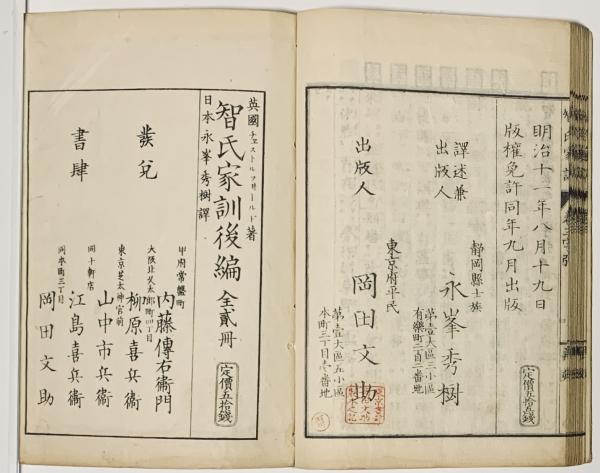 明治十一年八月十九日
版權免許同年九月出版
定價五拾五錢
譯述兼
出版人
靜岡縣士族
永峯秀樹
第壹大區三小區
有樂町二百一番地
出版人
東京府平民
岡田文助
第壹大區五小區
本町三丁目壱番地
英國チェストルフヒールド著
智氏家訓後編 全貳冊
定價五拾錢
日本永峯秀樹譯
發兌
書肆
甲府常盤町
内藤傳右衛門
大阪北久太郎町四丁目
柳原喜兵衛
東京芝太神宮前
山中市兵衛
同十軒店
江島喜兵衛
同本町三丁目
岡田文助